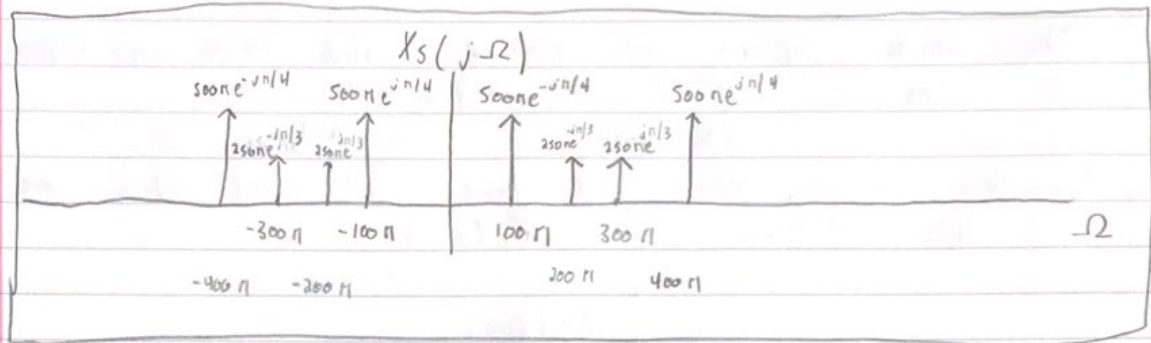 Xs(jΩ)
500πe^-jπ/4 500πe^jπ/4 500πe^-jπ/4 500πe^jπ/4
250πe^-jπ/3 250πe^jπ/3 250πe^-jπ/3 250πe^jπ/3
-300π -100π 100π 300π Ω
-400π -200π 200π 400π